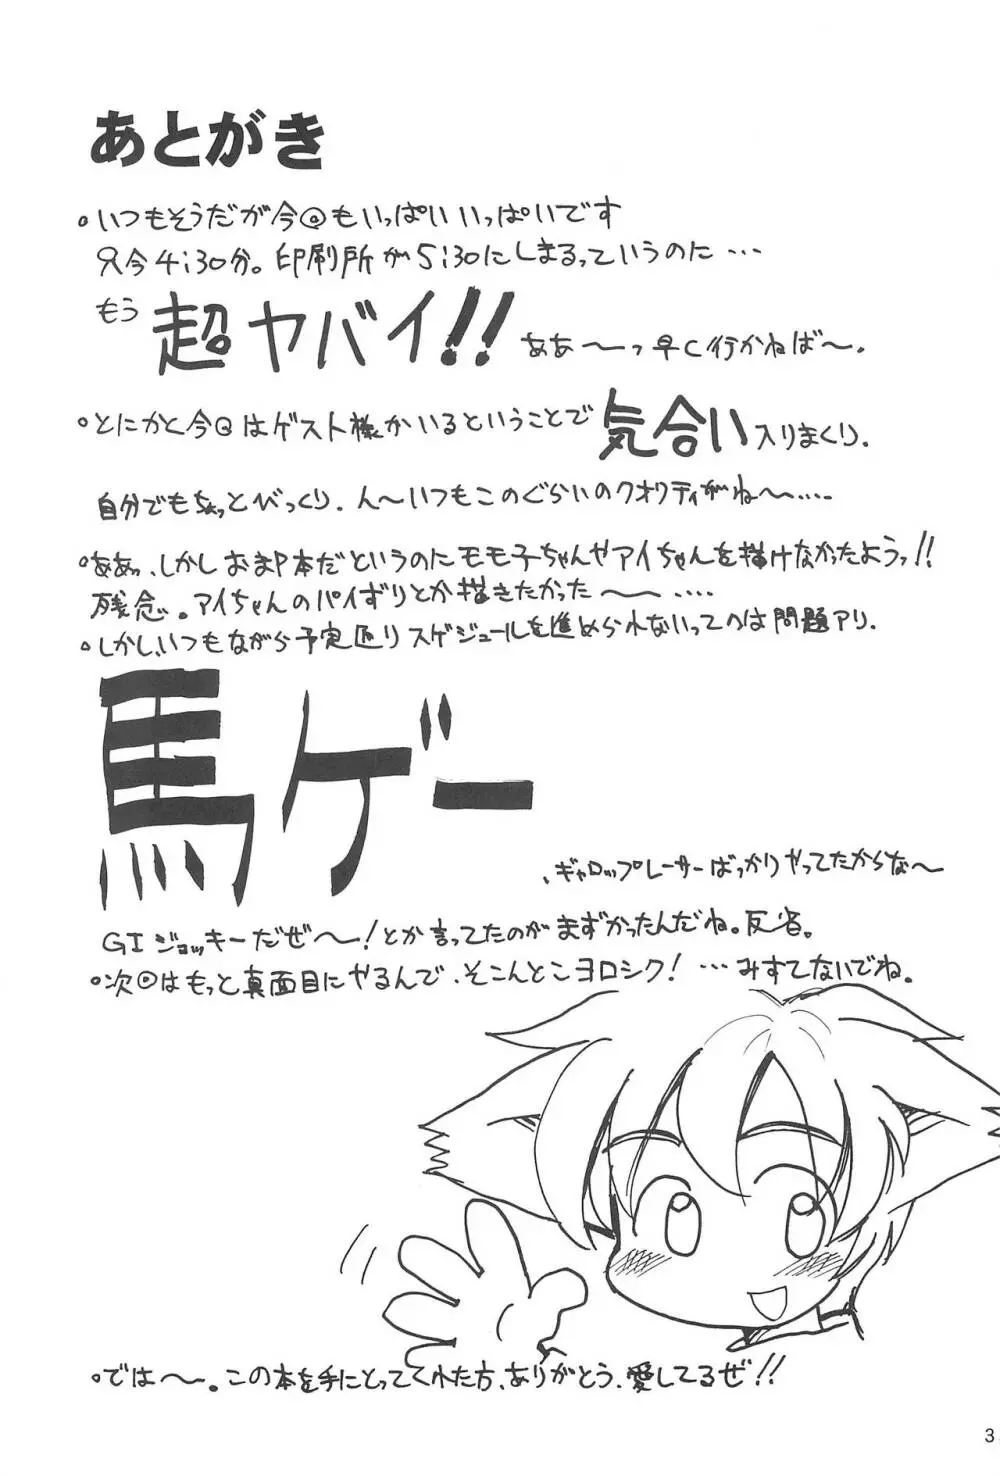 あとがき
・いつもそうだが今回もいっぱいいっぱいです
只今4:30分。印刷所が5:30にしまるっていうのに…
もう超ヤバイ!! ああ〜っ早く行かねば〜。
・とにかく今回はゲスト様がいるということで気合い入りまくり。
自分でもちょっとびっくり。ん〜いつもこのぐらいのクオリティがね〜……
・ああっ、しかしおま中本だというのにモモ子ちゃんやアイちゃんを描けなかったようっ!!
残念。アイちゃんのパイずりとか描きたかった〜……
・しかし、いつもながら予定通りスケジュールを進められないってのは問題アリ。
馬ゲー、ギャロップレーサーばっかりやってたからな〜
GIジョッキーだぜ〜!とか言ってたのがまずかったんだね。反省。
・次回はもっと真面目にやるんで、そこんとこヨロシク!…みすてないでね。
・では〜。この本を手にとってくれた方、ありがとう、愛してるぜ!!
3